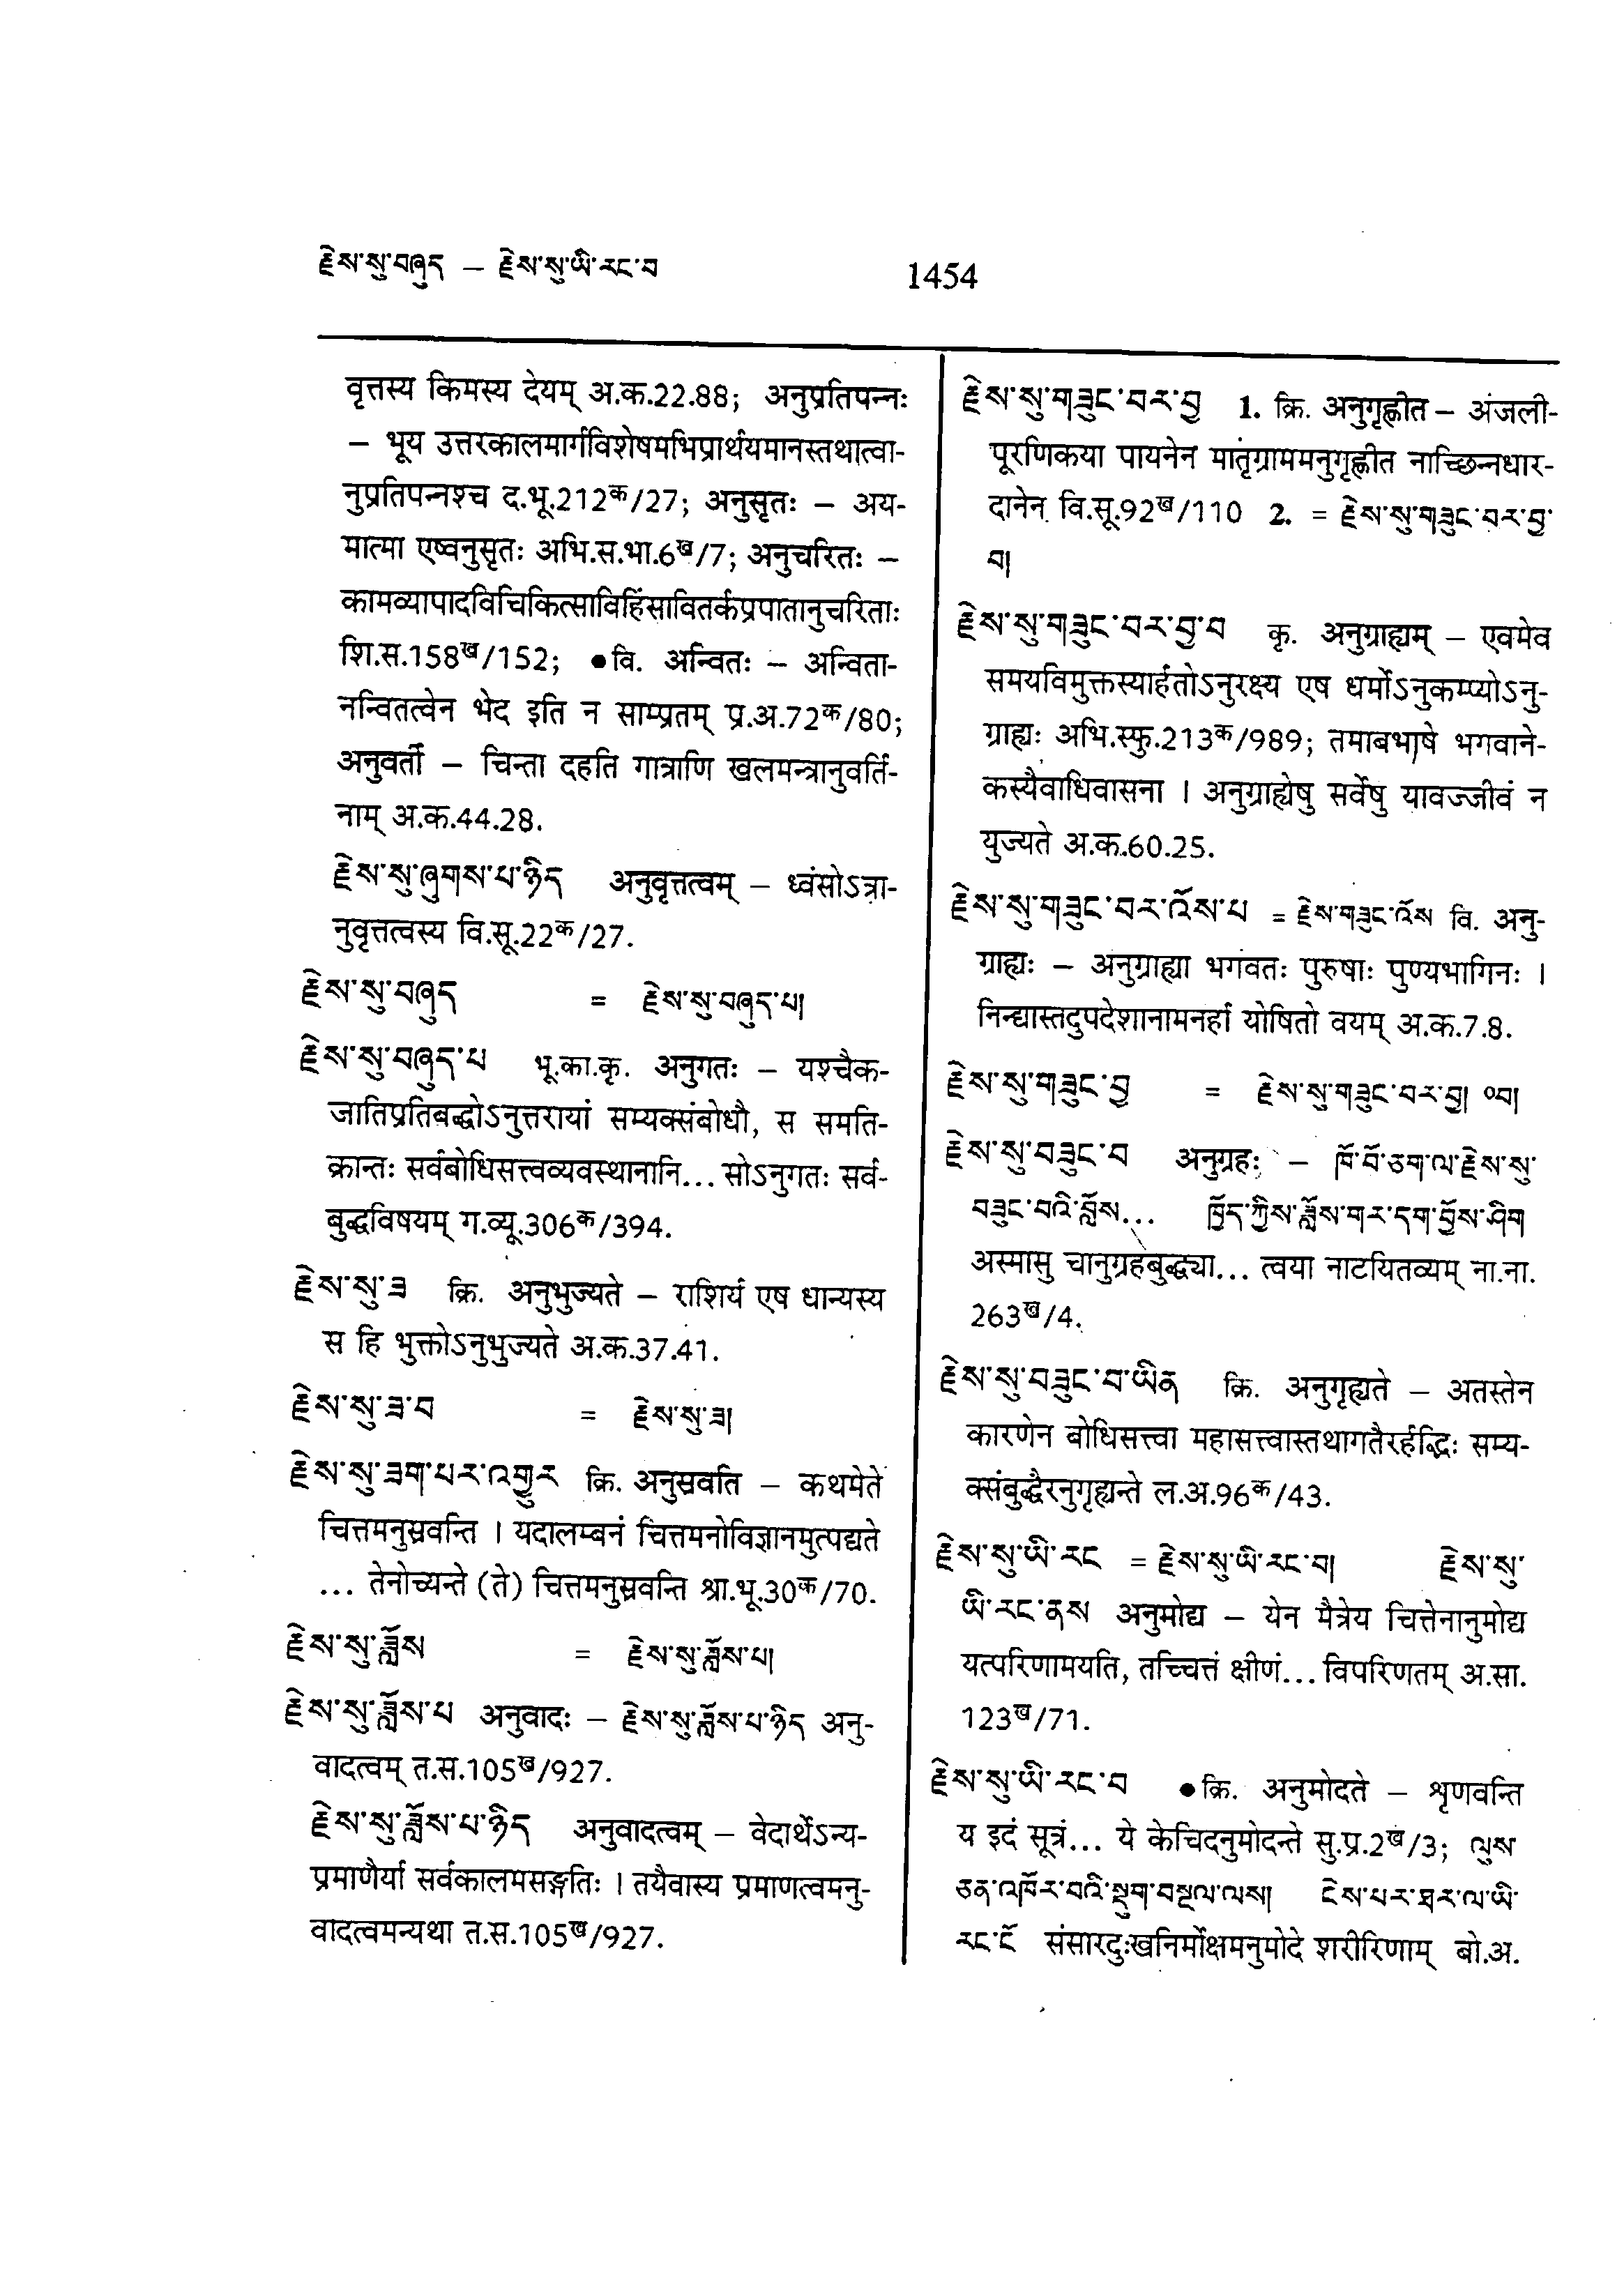 རྗེས་སུ་བཞུད – རྗེས་སུ་ཡི་རང་བ
1454
वृत्तस्य किमस्य देयम् अ.क.22.88; अनुप्रतिपन्नः
– भूय उत्तरकालमार्गविशेषमभिप्रार्थयमानस्तथात्वा-
नुप्रतिपन्नश्च द.भू.212क/27; अनुसृतः – अय-
मात्मा एष्वनुसृतः अभि.स.भा.6ख/7; अनुचरितः –
कामव्यापादविचिकित्साविहिंसावितर्कप्रपातानुचरिताः
शि.स.158ख/152; ●वि. अन्वितः – अन्विता-
नन्वितत्वेन भेद इति न साम्प्रतम् प्र.अ.72क/80;
अनुवर्ती – चिन्ता दहति गात्राणि खलमन्त्रानुवर्ति-
नाम् अ.क.44.28.
རྗེས་སུ་ཞུགས་པ་ཉིད अनुवृत्तत्वम् – ध्वंसोऽत्रा-
नुवृत्तत्वस्य वि.सू.22क/27.
རྗེས་སུ་བཞུད = རྗེས་སུ་བཞུད་པ།
རྗེས་སུ་བཞུད་པ भू.का.कृ. अनुगतः – यश्चैक-
जातिप्रतिबद्धोऽनुत्तरायां सम्यक्संबोधौ, स समति-
क्रान्तः सर्वबोधिसत्त्वव्यवस्थानानि... सोऽनुगतः सर्व-
बुद्धविषयम् ग.व्यू.306क/394.
རྗེས་སུ་ཟ क्रि. अनुभुज्यते – राशिर्य एष धान्यस्य
स हि भुक्तोऽनुभुज्यते अ.क.37.41.
རྗེས་སུ་ཟ་བ = རྗེས་སུ་ཟ།
རྗེས་སུ་ཟག་པར་འགྱུར क्रि. अनुस्रवति – कथमेते
चित्तमनुस्रवन्ति । यदालम्बनं चित्तमनोविज्ञानमुत्पद्यते
... तेनोच्यन्ते (ते) चित्तमनुस्रवन्ति श्रा.भू.30क/70.
རྗེས་སུ་ཟློས = རྗེས་སུ་ཟློས་པ།
རྗེས་སུ་ཟློས་པ अनुवादः – རྗེས་སུ་ཟློས་པ་ཉིད अनु-
वादत्वम् त.स.105ख/927.
རྗེས་སུ་ཟློས་པ་ཉིད अनुवादत्वम् – वेदार्थेऽन्य-
प्रमाणैर्या सर्वकालमसङ्गतिः । तयैवास्य प्रमाणत्वमनु-
वादत्वमन्यथा त.स.105ख/927.
རྗེས་སུ་གཟུང་བར་བྱ 1. क्रि. अनुगृह्णीत – अंजली-
पूरणिकया पायनेन मातृग्राममनुगृह्णीत नाच्छिन्नधार-
दानेन वि.सू.92ख/110 2. = རྗེས་སུ་གཟུང་བར་བྱ་
བ།
རྗེས་སུ་གཟུང་བར་བྱ་བ कृ. अनुग्राह्यम् – एवमेव
समयविमुक्तस्यार्हतोऽनुरक्ष्य एष धर्मोऽनुकम्प्योऽनु-
ग्राह्यः अभि.स्फु.213क/989; तमाबभाषे भगवाने-
कस्यैवाधिवासना । अनुग्राह्येषु सर्वेषु यावज्जीवं न
युज्यते अ.क.60.25.
རྗེས་སུ་གཟུང་བར་འོས་པ = རྗེས་གཟུང་འོས वि. अनु-
ग्राह्यः – अनुग्राह्या भगवतः पुरुषाः पुण्यभागिनः ।
निन्द्यास्तदुपदेशानामनर्हा योषितो वयम् अ.क.7.8.
རྗེས་སུ་གཟུང་བྱ = རྗེས་སུ་གཟུང་བར་བྱ། ༠བ།
རྗེས་སུ་བཟུང་བ अनुग्रहः – ཁོ་བོ་ཅག་ལ་རྗེས་སུ་
བཟུང་བའི་བློས... ཁྱོད་ཀྱིས་ཟློས་གར་དག་བྱོས་ཤིག
अस्मासु चानुग्रहबुद्ध्या... त्वया नाटयितव्यम् ना.ना.
263ख/4.
རྗེས་སུ་བཟུང་བ་ཡིན क्रि. अनुगृह्यते – अतस्तेन
कारणेन बोधिसत्त्वा महासत्त्वास्तथागतैरर्हद्भिः सम्य-
क्संबुद्धैरनुगृह्यन्ते ल.अ.96क/43.
རྗེས་སུ་ཡི་རང = རྗེས་སུ་ཡི་རང་བ། རྗེས་སུ་
ཡི་རང་ནས अनुमोद्य – येन मैत्रेय चित्तेनानुमोद्य
यत्परिणामयति, तच्चित्तं क्षीणं... विपरिणतम् अ.सा.
123ख/71.
རྗེས་སུ་ཡི་རང་བ ●क्रि. अनुमोदते – श्रृणवन्ति
य इदं सूत्रं... ये केचिदनुमोदन्ते सु.प्र.2ख/3; ལུས་
ཅན་འཁོར་བའི་སྡུག་བསྔལ་ལས། ངེས་པར་ཐར་ལ་ཡི་
རང་ངོ संसारदुःखनिर्मोक्षमनुमोदे शरीरिणाम् बो.अ.